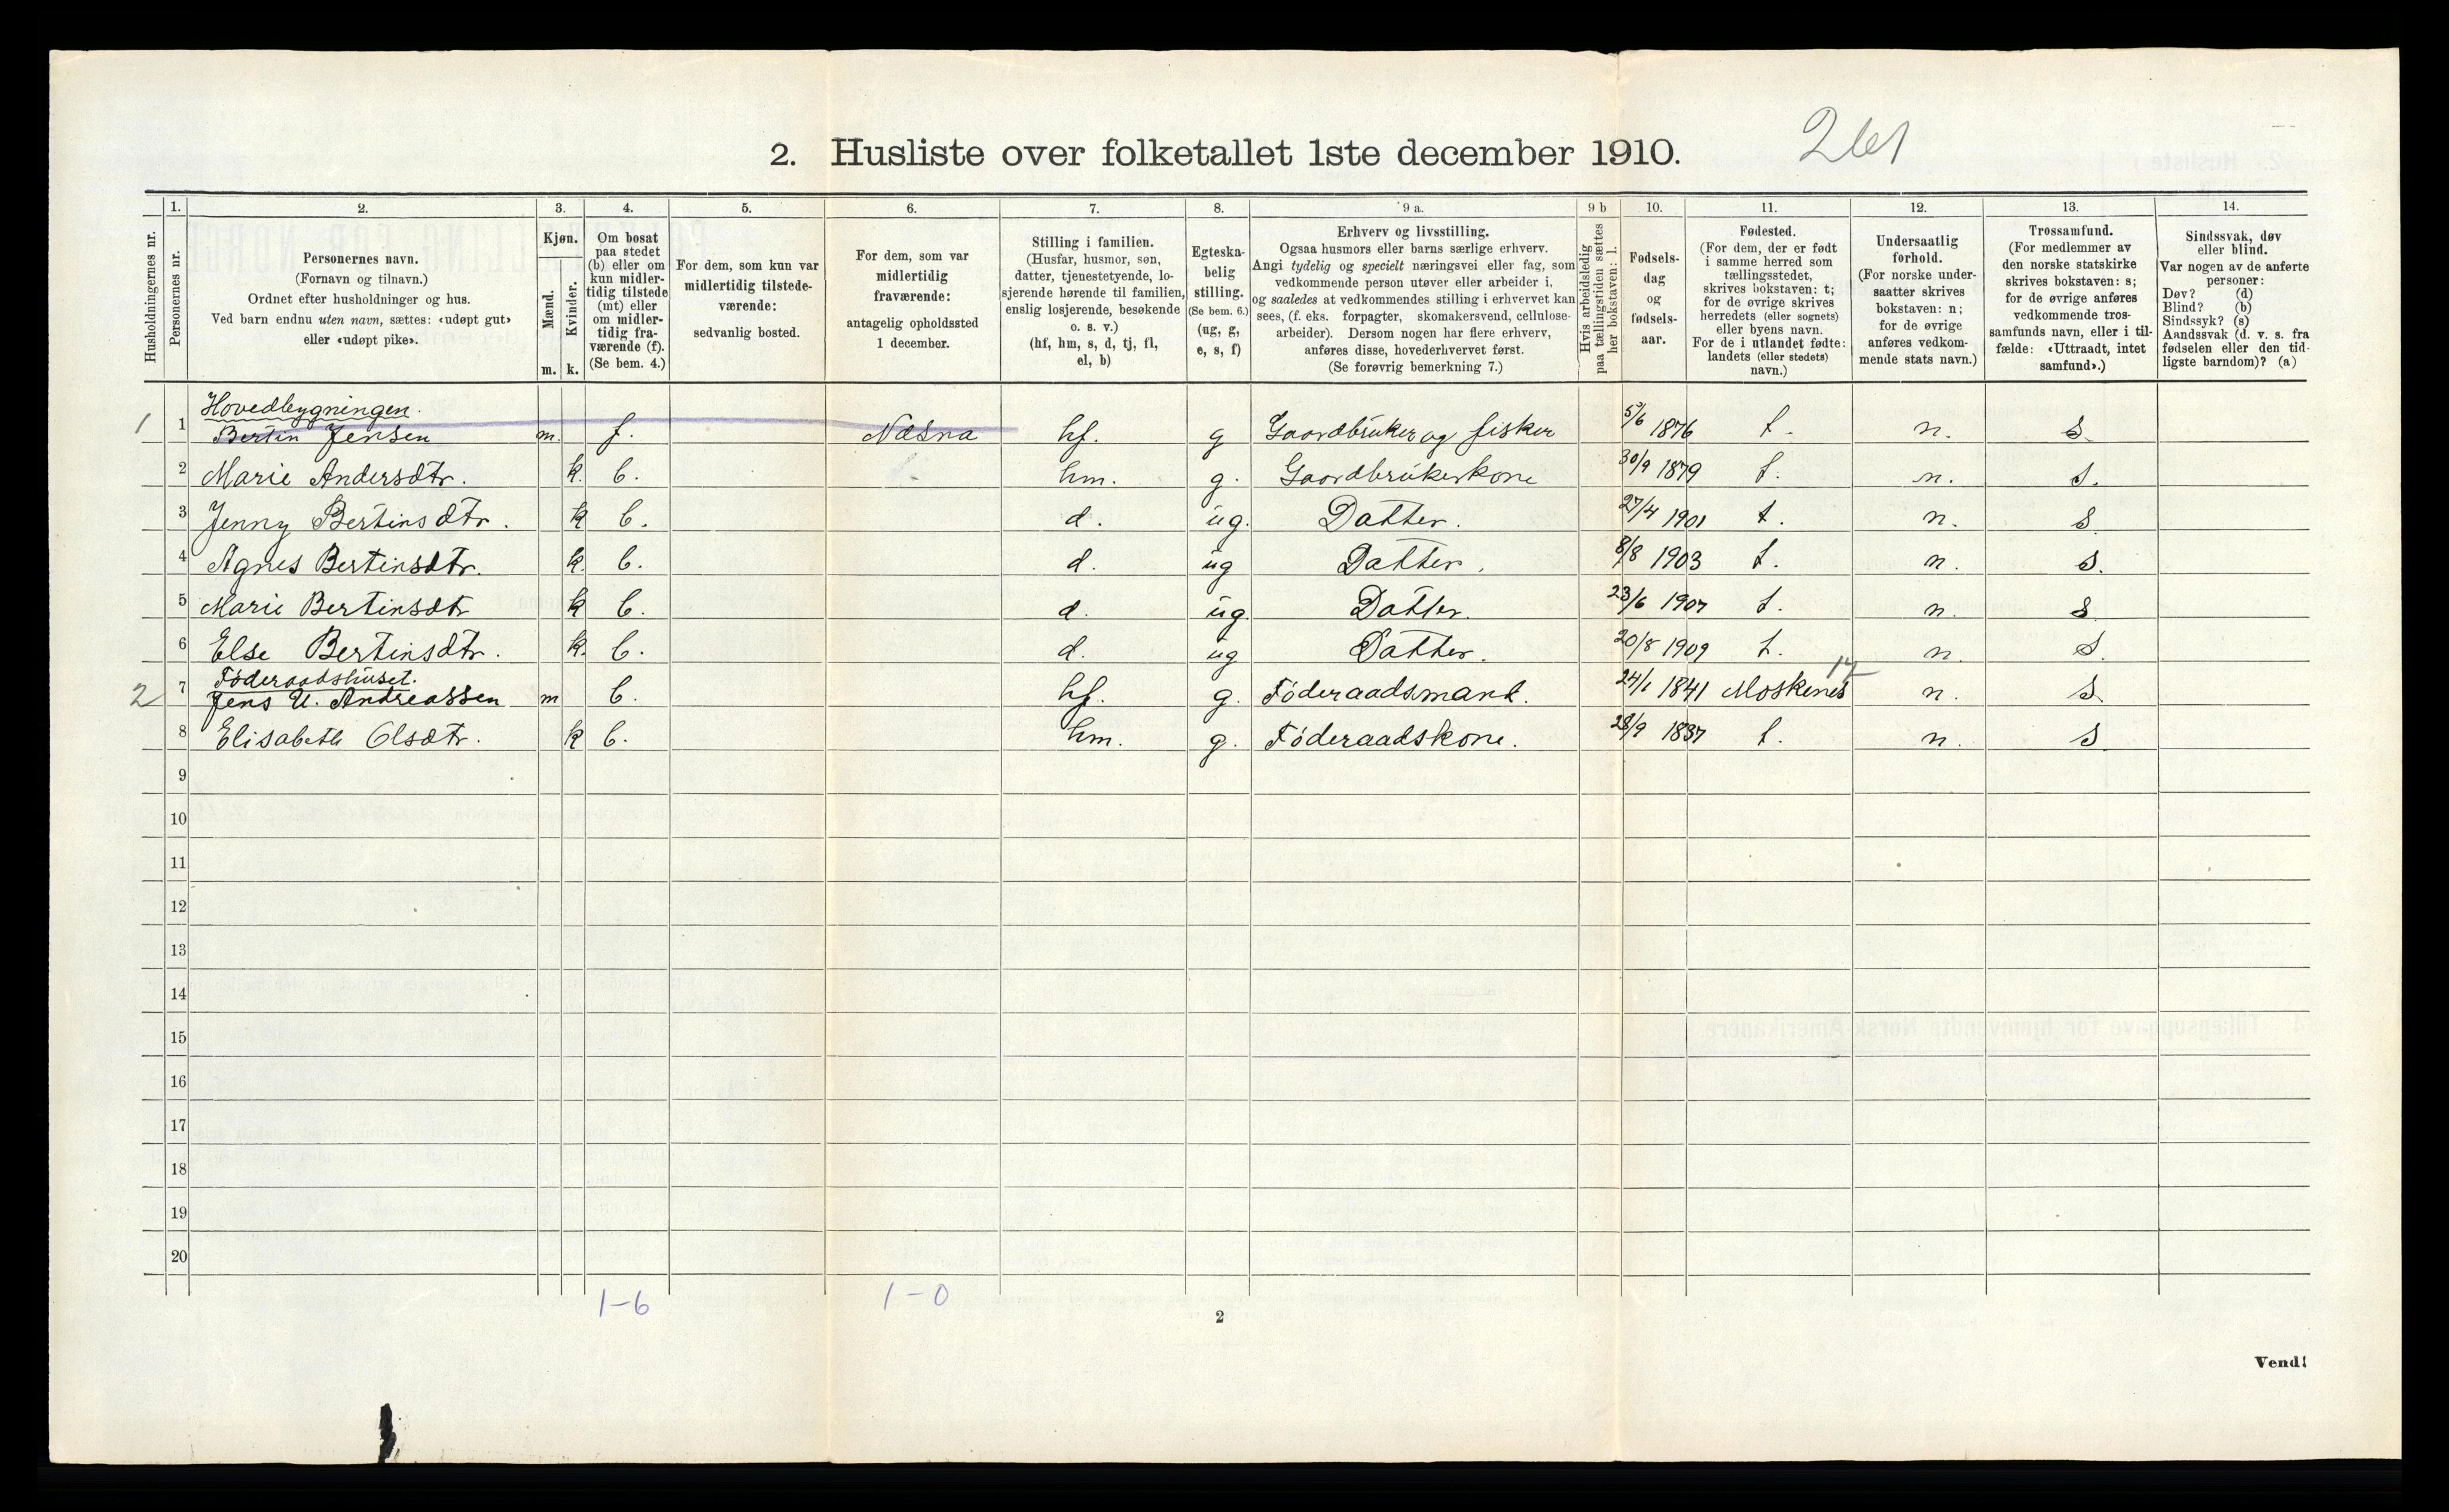 2. Husliste over folketallet 1ste december 1910.
261
1. 2. 3. 4. 5. 6. 7. 8. 9 a. 9 b 10. 11. 12. 13. 14.
Husholdningernes nr.
Personernes nr.
Personernes navn.
(Fornavn og tilnavn.)
Ordnet efter husholdninger og hus.
Ved barn endnu uten navn, sættes: «udøpt gut»
eller «udøpt pike».
Kjøn.
Mænd.
Kvinder.
m. k.
Om bosat
paa stedet
(b) eller om
kun midler-
tidig tilstede
(mt) eller
om midler-
tidig fra-
værende (f).
(Se bem. 4.)
For dem, som kun var
midlertidig tilstede-
værende:
sedvanlig bosted.
For dem, som var
midlertidig
fraværende:
antagelig opholdssted
1 december.
Stilling i familien.
(Husfar, husmor, søn,
datter, tjenestetyende, lo-
sjerende hørende til familien,
enslig losjerende, besøkende
o. s. v.)
(hf, hm, s, d, tj, fl,
el, b)
Egteska-
belig
stilling.
(Se bem. 6.)
(ug, g,
e, s, f)
Erhverv og livsstilling.
Ogsaa husmors eller barns særlige erhverv.
Angi tydelig og specielt næringsvei eller fag, som
vedkommende person utøver eller arbeider i,
og saaledes at vedkommendes stilling i erhvervet kan
sees, (f. eks. forpagter, skomakersvend, cellulose-
arbeider). Dersom nogen har flere erhverv,
anføres disse, hovederhvervet først.
(Se forøvrig bemerkning 7.)
Hvis arbeidsledig
paa tællingstiden sættes
her bokstaven: l.
Fødsels-
dag
og
fødsels-
aar.
Fødested.
(For dem, der er født
i samme herred som
tællingsstedet,
skrives bokstaven: t;
for de øvrige skrives
herredets (eller sognets)
eller byens navn.
For de i utlandet fødte:
landets (eller stedets)
navn.)
Undersaatlig
forhold.
(For norske under-
saatter skrives
bokstaven: n;
for de øvrige
anføres vedkom-
mende stats navn.)
Trossamfund.
(For medlemmer av
den norske statskirke
skrives bokstaven: s;
for de øvrige anføres
vedkommende tros-
samfunds navn, eller i til-
fælde: «Uttraadt, intet
samfund».)
Sindssvak, døv
eller blind.
Var nogen av de anførte
personer:
Døv? (d)
Blind? (b)
Sindssyk? (s)
Aandssvak (d. v. s. fra
fødselen eller den tid-
ligste barndom)? (a)
Hovedbygningen.
1 1 Bertin Jensen m. f. Næsna hf. g Gaardbruker og fisker 5/6 1876 t. n. s
2 Marie Andersdtr. k. b. hm. g. Gaardbrukerkone 30/9 1879 t. n. s.
3 Jenny Bertinsdtr. k b. d. ug. Datter. 27/4 1901 t. n. s
4 Agnes Bertinsdtr. k. b. d. ug Datter. 8/8 1903 t. n. s.
5 Marie Bertinsdtr k b. d. ug. Datter. 23/6 1907 t. n. s
6 Else Bertinsdtr. k. b. d. ug Datter. 20/8 1909 t. n. s.
Föderaadshuset.
2 7 Jens U. Andreassen m b. hf. g. Föderaadsmand. 24/1 1841 Moskenes n. s
8 Elisabeth Olsdtr. k b. hm. g. Föderaadskone. 28/9 1837 t. n. s
9
10
11
12
13
14
15
16
17
18
19
20
1-6 1-0
2
Vend!